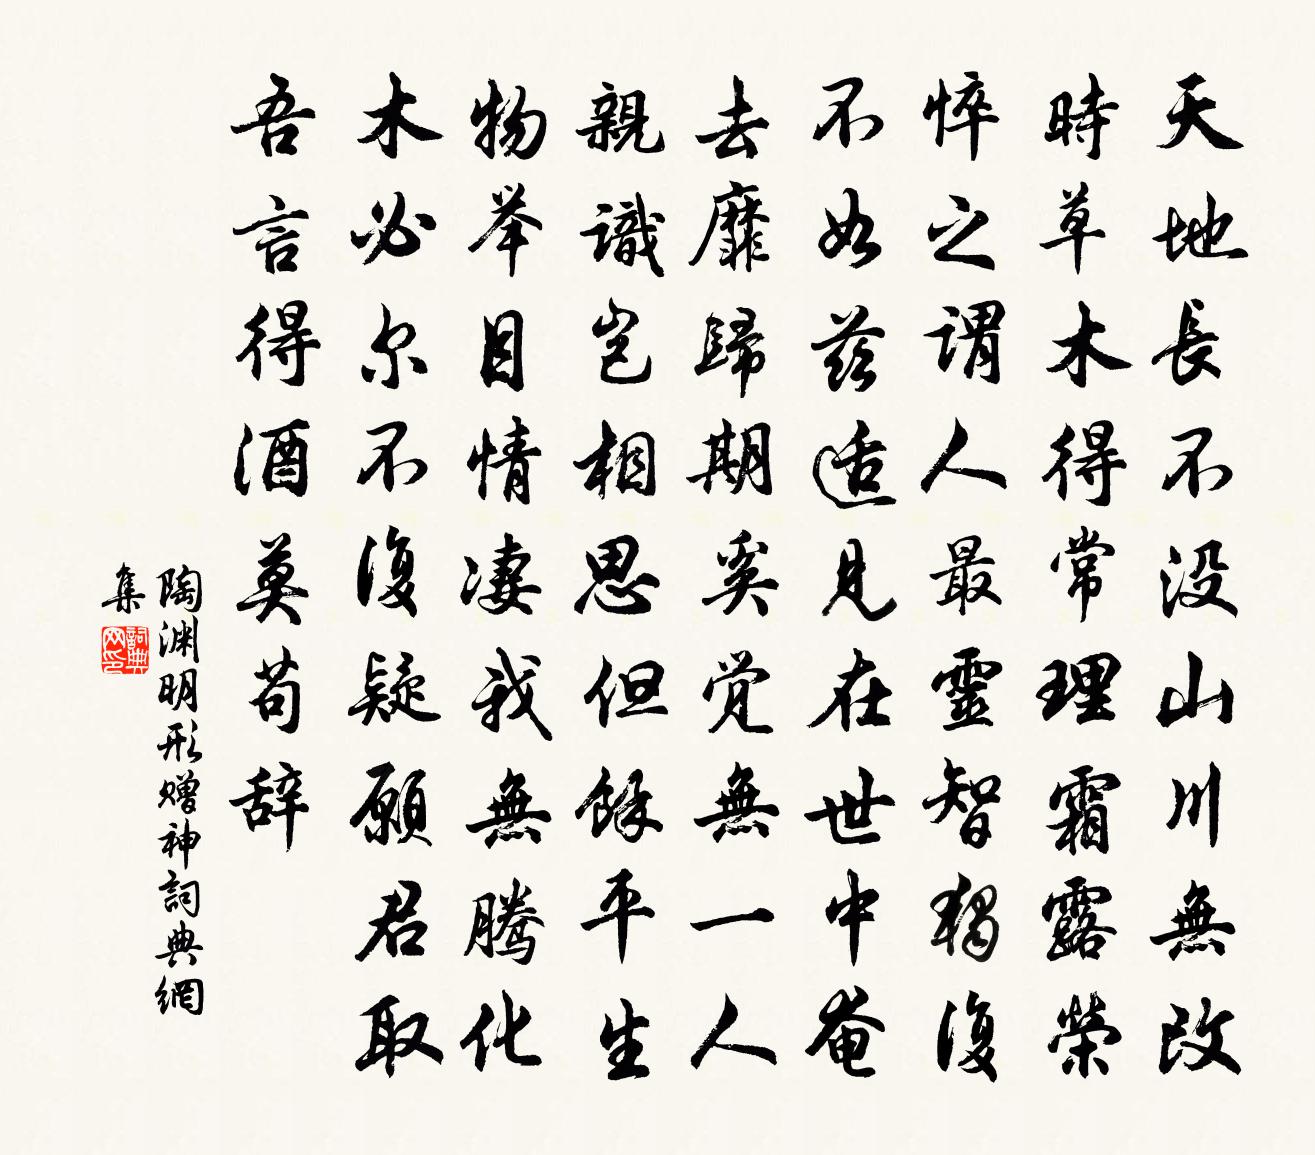 天地長不没山川無改
時草木得常理霜露榮
悴之謂人最靈智獨復
不如茲適見在世中奄
去靡歸期奚觉無一人
親識豈相思但餘平生
物举目情凄我無騰化
木必尔不復疑願君取
吾言得酒莫苟辞
陶渊明形赠神詞典網
集
詞典网印